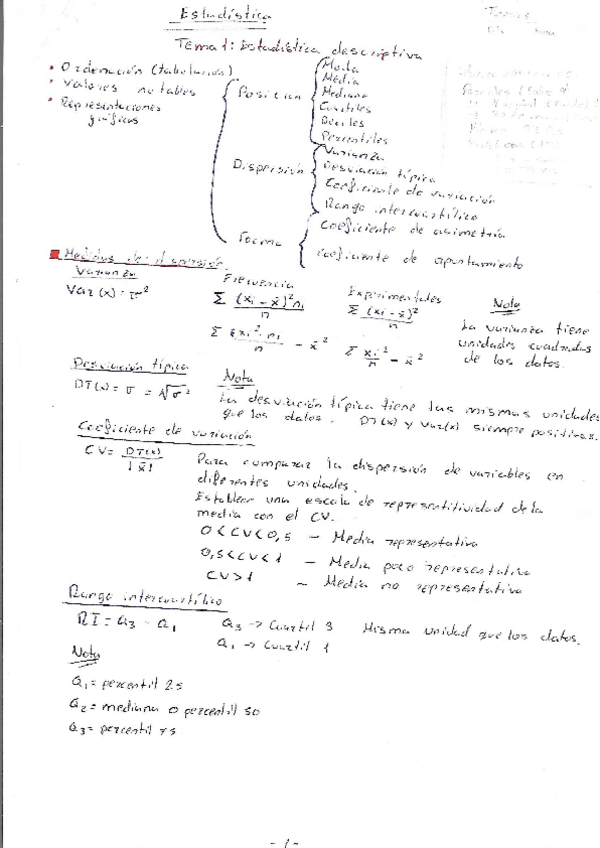 Estadística
Tema 1: Estadística descriptiva
• Ordenación (tabulación)
• Valores notables
• Representaciones gráficas
Posición
Moda
Media
Mediana
Cuartiles
Deciles
Percentiles
Dispersión
Varianza
Desviación típica
Coeficiente de variación
Rango intercuartílico
Forma
Coeficiente de asimetría
Coeficiente de apuntamiento
Medidas de dispersión
Varianza
Var(x) = σ²
Frecuencia
Σ (xi - x̄)² ni / n
Σ xi² · ni / n - x̄²
Experimentales
Σ (xi - x̄)² / n
Σ xi² / n - x̄²
Nota
La varianza tiene
unidades cuadradas
de los datos.
Desviación típica
DT(x) = σ = +√σ²
Nota
La desviación típica tiene las mismas unidades
que los datos. DT(x) y Var(x) siempre positivas.
Coeficiente de variación
CV = DT(x) / |x̄|
Para comparar la dispersión de variables en
diferentes unidades.
Establear una escala de representitividad de la
media con el CV.
0 < CV < 0,5 - Media representativa
0,5 < CV < 1 - Media poco representativa
CV > 1 - Media no representativa
Rango intercuartílico
RI = Q3 - Q1
Q3 -> Cuartil 3 Misma unidad que los datos.
Q1 -> Cuartil 1
Nota
Q1 = percentil 25
Q2 = mediana o percentil 50
Q3 = percentil 75
- 1 -